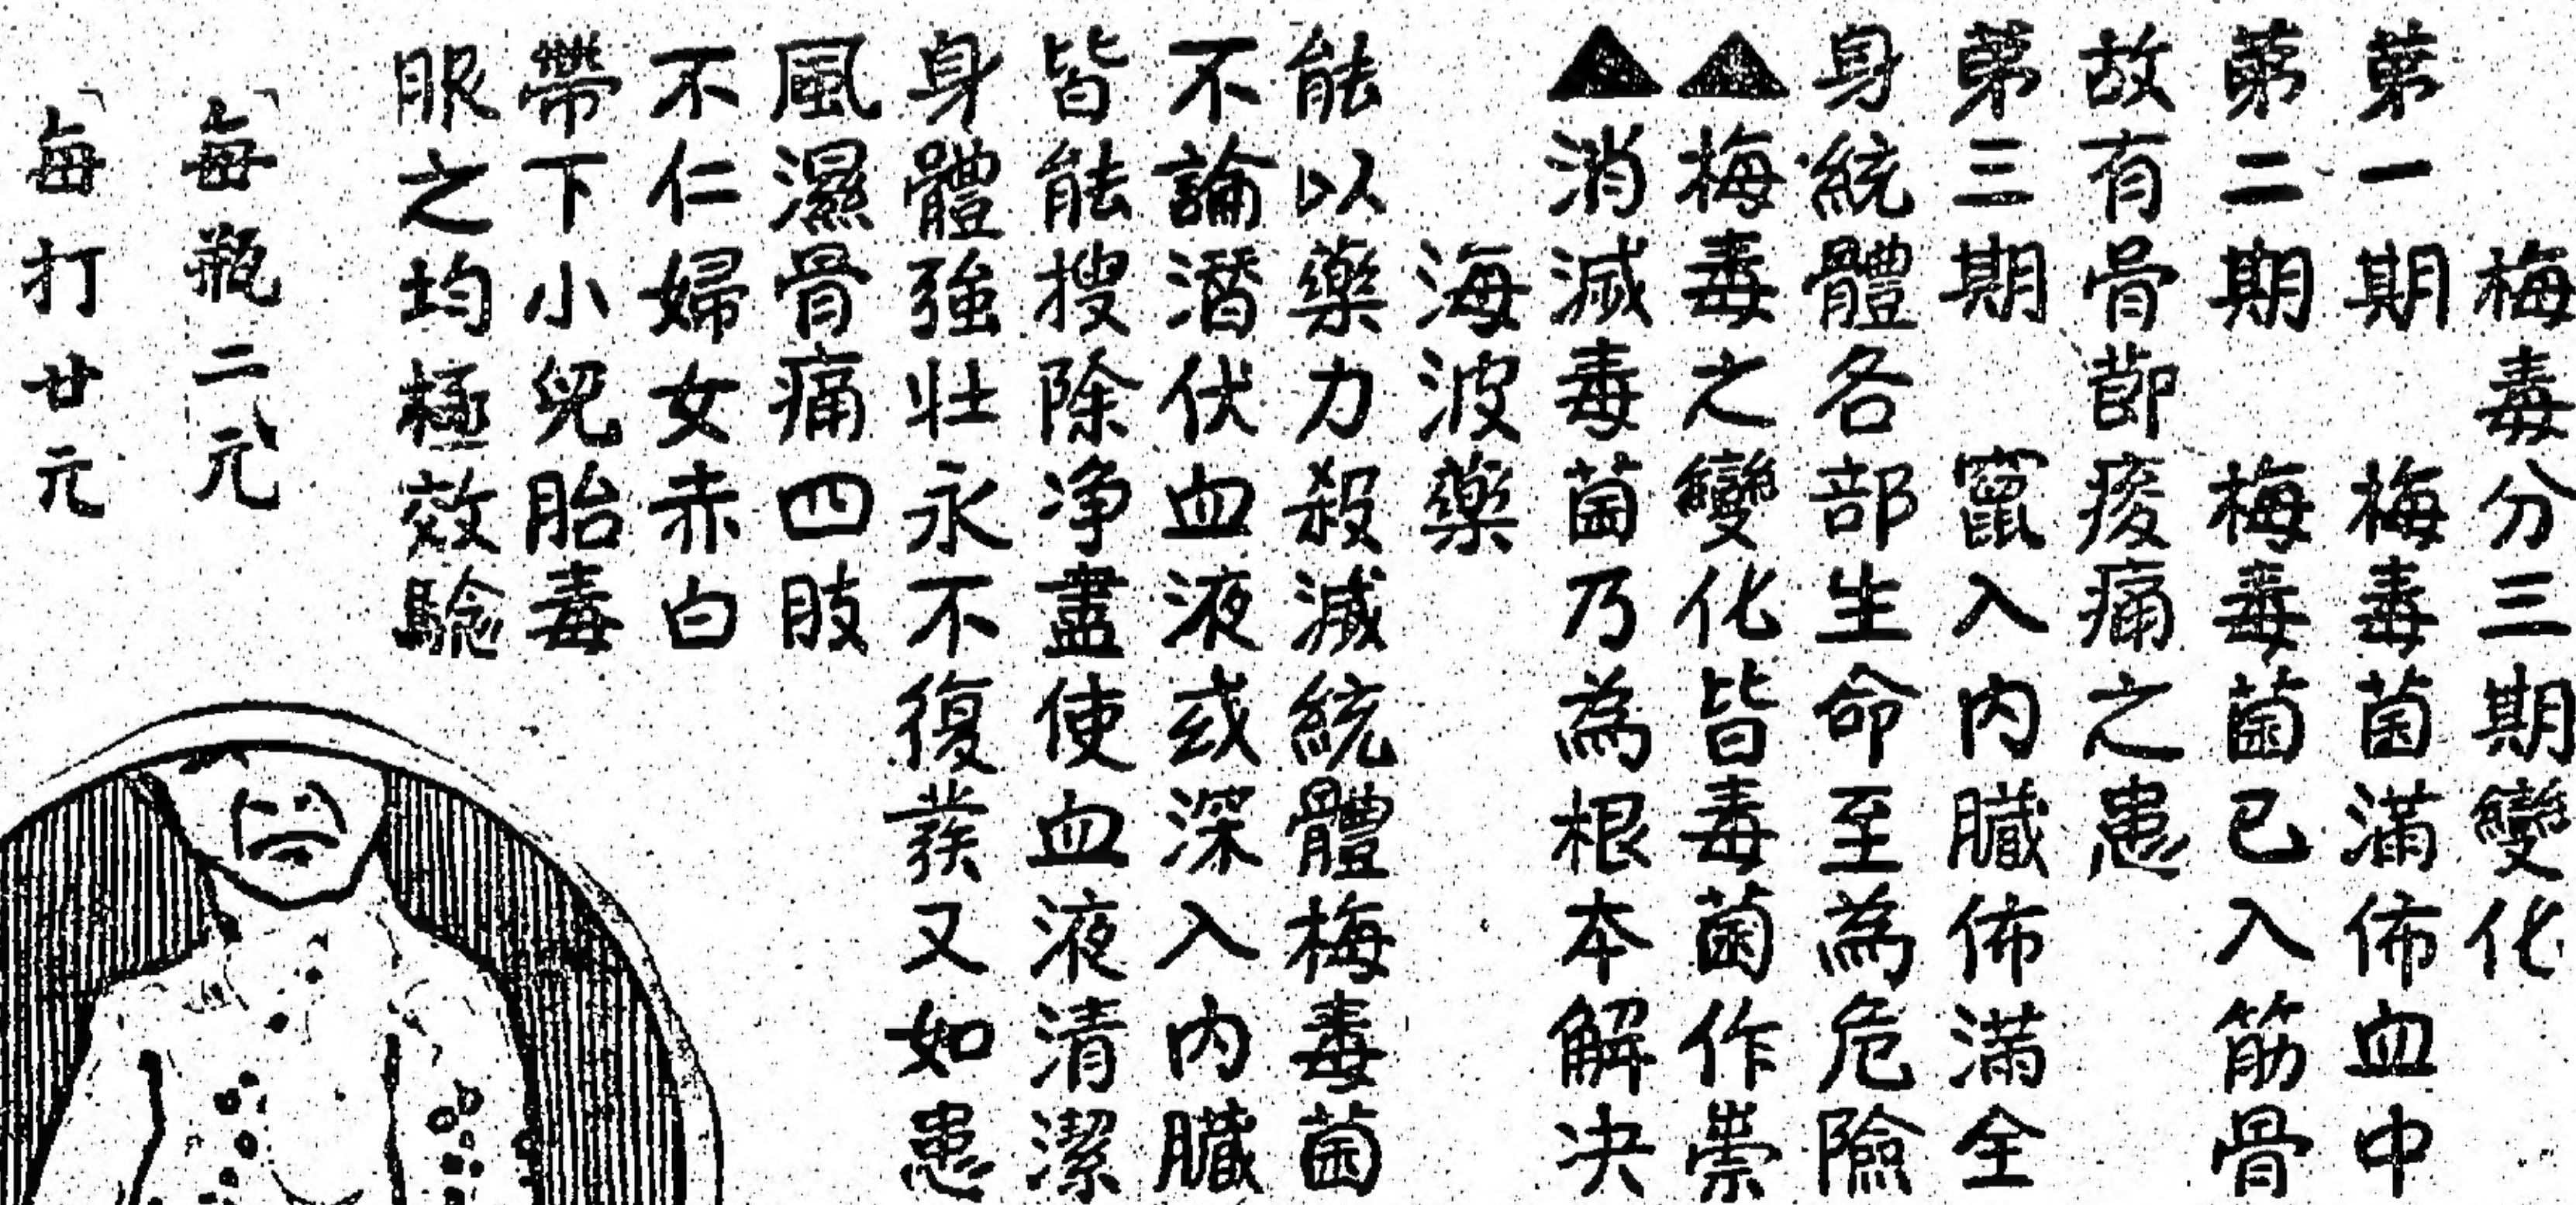 梅毒分三期變化
第一期 梅毒菌滿佈血中
第二期 梅毒菌已入筋骨
故有骨節痠痛之患
第三期 竄入内臟佈滿全
身統體各部生命至為危險
▲梅毒之變化皆毒菌作祟
▲消滅毒菌乃為根本解决
海波藥
能以藥力殺滅統體梅毒菌
不論潛伏血液或深入内臟
皆能搜除净盡使血液清潔
身體強壯永不復發又如患
風濕骨痛四肢
不仁婦女赤白
帶下小兒胎毒
服之均極效驗
每瓶二元
每打廿元